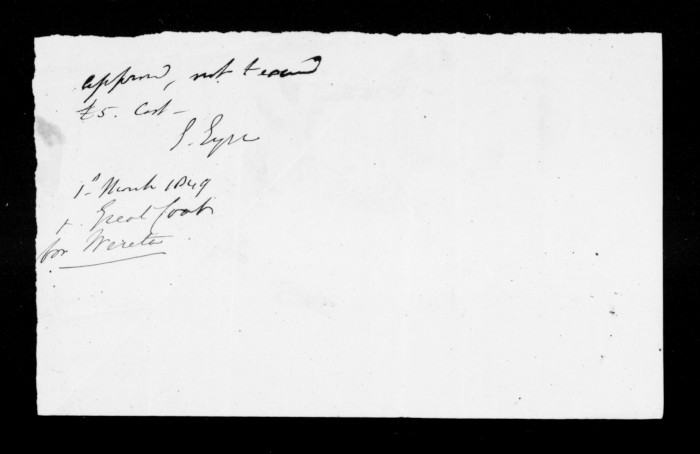 approved, not to exceed
£5. Cost –
E. Eyre
1st March 1849
+ Great Coat
for Wereta